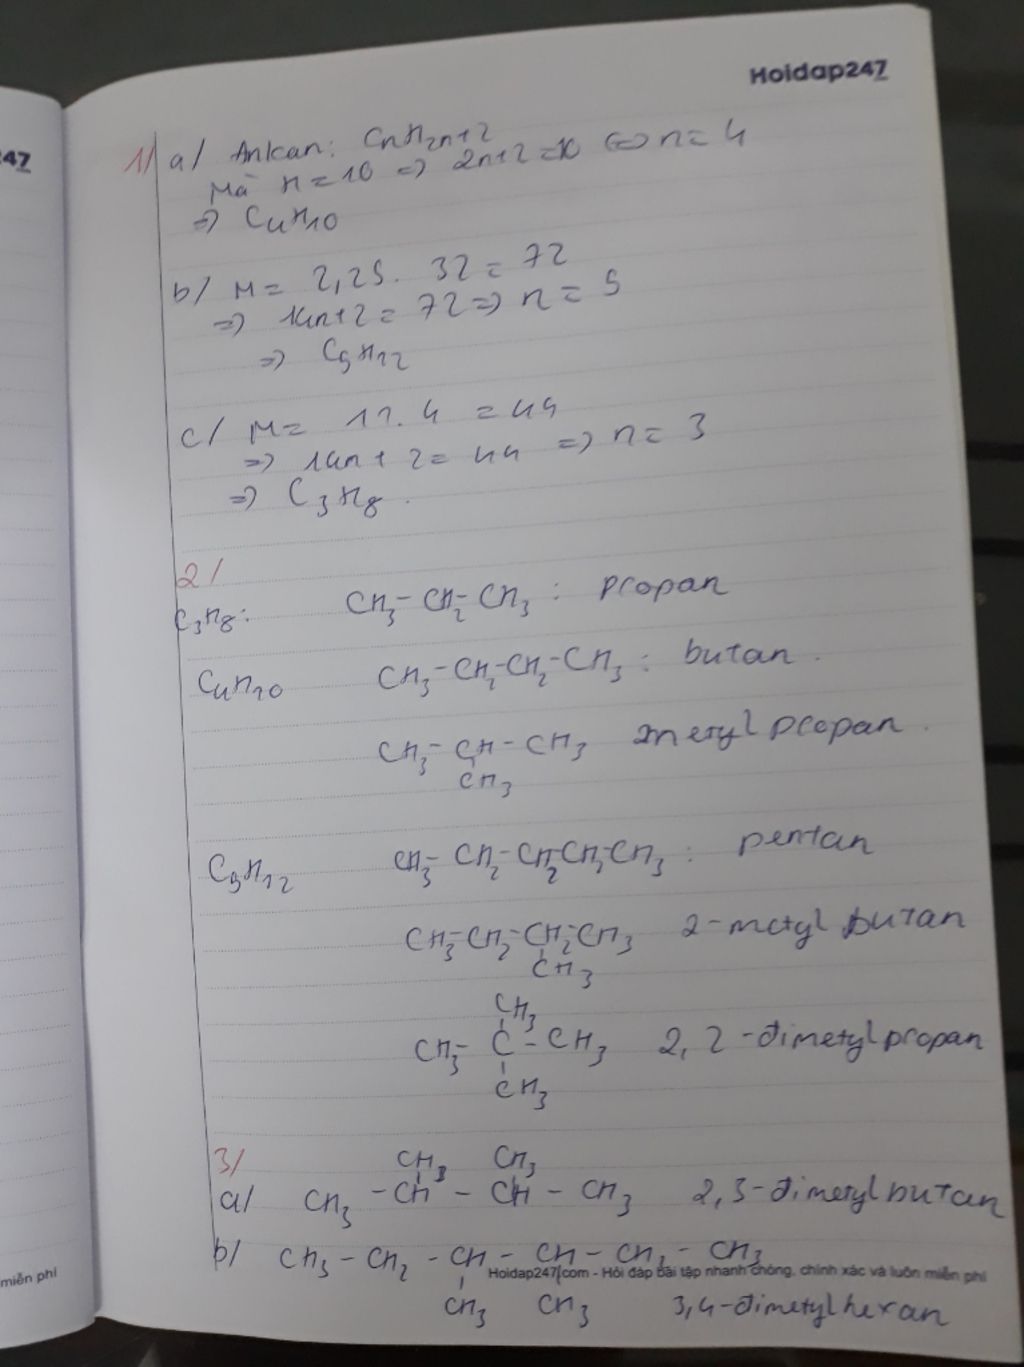 Hoidap247
47
1/ a/ Ankan: CnH2n+2
Mà H = 10 => 2n+2=10 <=> n = 4
=> C4H10
b/ M = 2,25. 32 = 72
=> 14n+2 = 72 => n = 5
=> C5H12
c/ M = 11. 4 = 44
=> 14n + 2 = 44 => n = 3
=> C3H8.
2/
C3H8: CH3- CH2- CH3 : propan
C4H10 CH3-CH2-CH2-CH3 : butan.
CH3- CH- CH3 2metyl propan.
CH3
C5H12 CH3- CH2-CH2-CH2-CH3 : pentan
CH3-CH2-CH2-CH3 2-metyl butan
CH3
CH3
CH3- C - CH3 2,2-đimetylpropan
CH3
3/
CH3 CH3
a/ CH3 - CH - CH - CH3 2,3-đimetylbutan
b/ CH3 - CH2 - CH - CH - CH2 - CH3
miễn phí
Hoidap247.com - Hỏi đáp bài tập nhanh chóng, chính xác và luôn miễn phí
CH3 CH3 3,4-đimetylhexan